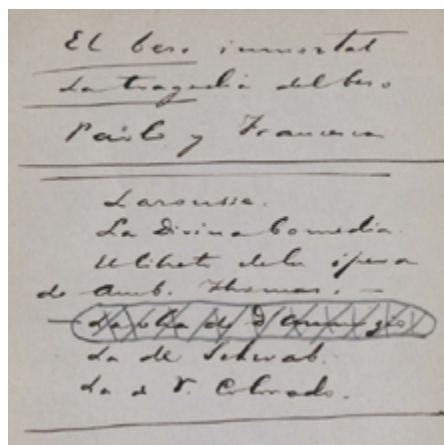 El beso inmortal
La tragedia del beso
Paolo y Francesca
Larousse.
La Divina Comedia.
El libreto de la ópera
de Amb. Thomas. —
La obra de D'Annunzio
La de Schwab.
La de V. Colorado.